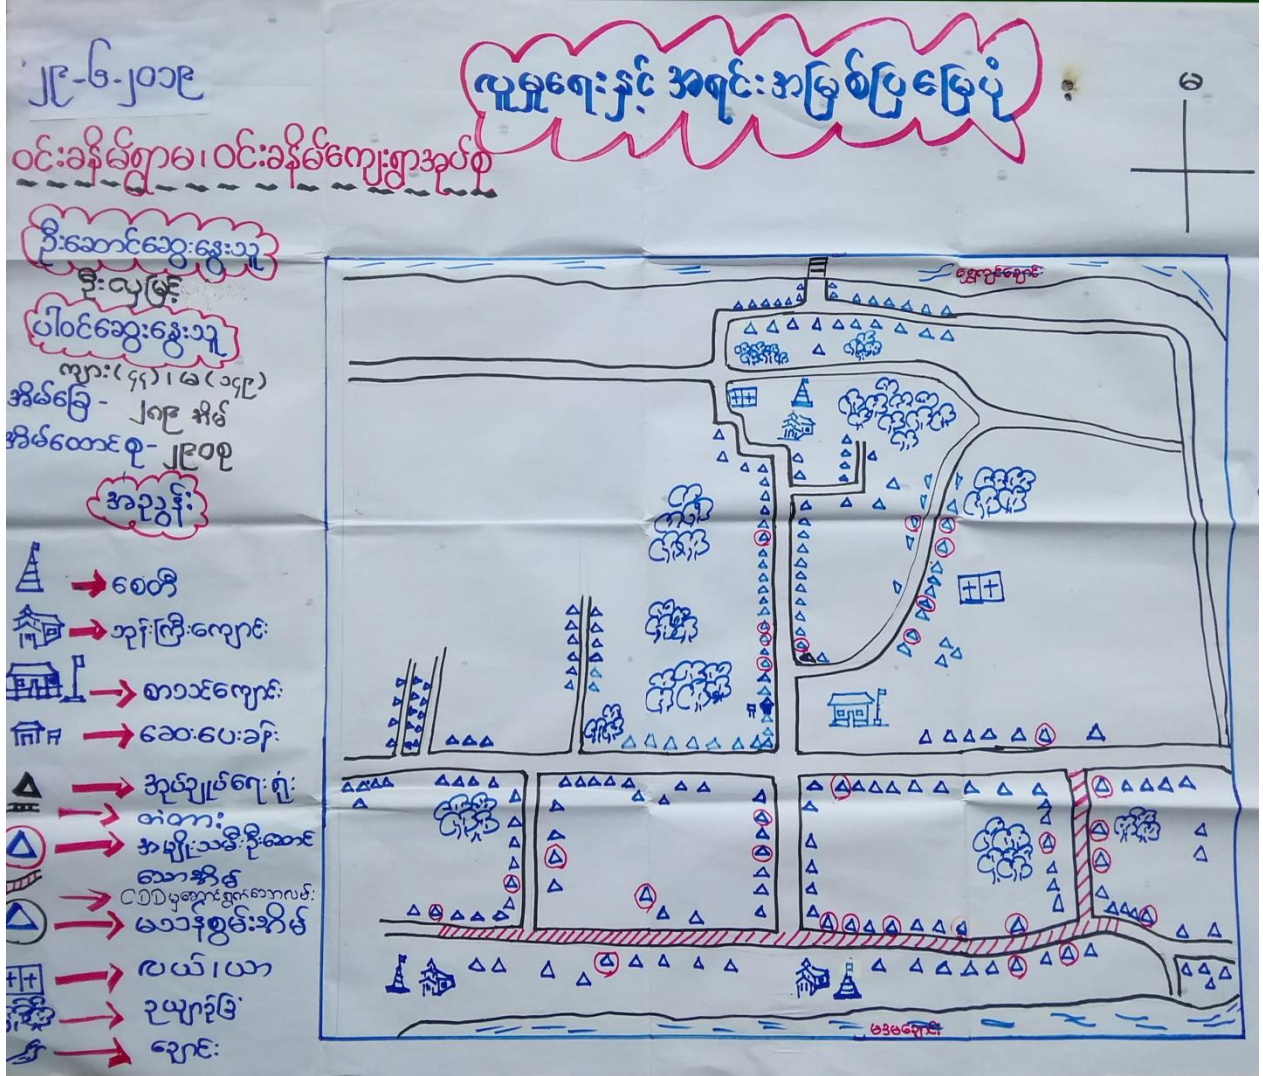 ၂၉-၆-၂၀၁၉
လူမှုရေးနှင့် အရင်းအမြစ်ပြမြေပုံ
မ
ဝင်းခနိမ်ရွာမ၊ ဝင်းခနိမ်ကျေးရွာအုပ်စု
ဦးဆောင်ဆွေးနွေးသူ
ဦးလှမြင့်
ပါဝင်ဆွေးနွေးသူ
ကျား(၄၄)၊ မ(၁၄၉)
အိမ်ခြေ - ၂၈၉ အိမ်
အိမ်ထောင်စု - ၂၉၀စု
အညွှန်း
စေတီ
ဘုန်းကြီးကျောင်း
စာသင်ကျောင်း
ဆေးပေးခန်း
အုပ်ချုပ်ရေးရုံး
တံတား
အမျိုးသမီးဦးဆောင်
သောအိမ်
CDDမှဆောင်ရွက်သောလမ်း
မသန်စွမ်းအိမ်
လယ်၊ ယာ
ဥယျာဉ်ခြံ
ချောင်း